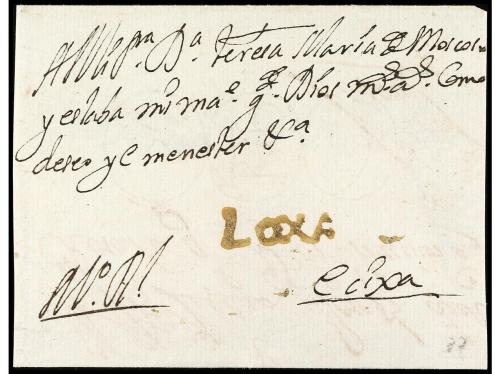 A Mi Sra. Da. Teresa María de Moscoso
y estaba mi mae. qe. Dios ms. as. Como
deseo y e menester &a
LOXA
Ecixa